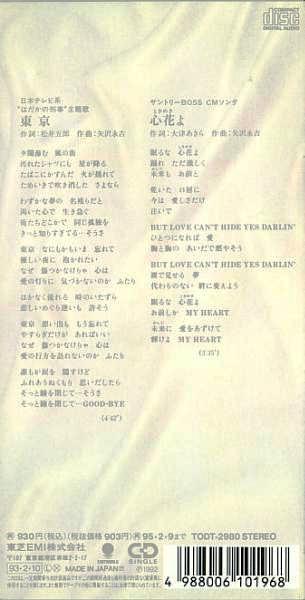 COMPACT
disc
DIGITAL AUDIO
日本テレビ系
"はだかの刑事"主題歌
東京
作詞：松井五郎　作曲：矢沢永吉
汚れたシャツにも　星が降る
たばこにかすんだ　火が揺れて
ためいきで吹き消した　さよなら
わずかな夢の　名残りだと
渇いた心で　生き急ぐ
街もどこかで　同じ孤独を
きっと知りすぎてる…そうさ
東京　なにもかもいま　忘れて
優しい街に　抱かれたい
なぜ　傷つかなけりゃ　心は
愛の灯りに　気づかないのか　ふたり
はかなく流れる　時のいたずら
悲しいめぐり逢いも　許そう
東京　思い出も　もう忘れて
やすらぎだけが　あればいい
なぜ　傷つかなけりゃ　心は
愛の行方を　語れないのか　ふたり
誰もが涙を　隠すけど
ふれあうぬくもり　思いだしたら
そっと瞳を閉じて…そうさ
そっと瞳を閉じて…GOOD-BYE
サントリーBOSS CMソング
ときめき
心花よ
作詞：大津あきら　作曲：矢沢永吉
眠るな　心花よ
踊れ　ただ激しく
未来も　お前と
乾いた　口唇に
今は　愛しさだけ
注いで
BUT LOVE CAN'T HIDE YES DARLIN'
ひとつになれば　愛
胸と胸の　あいだで燃やそう
BUT LOVE CAN'T HIDE YES DARLIN'
裸で見せる　夢
代わらのない　絆に変えよう
眠るな　心花よ
お前しか　MY HEART
未来に　愛をあずけて
輝けよ　MY HEART
Ⓟ930円(税込)(税抜価格 903円)Ⓡ95・2・9まで　TODT-2980 STEREO
東芝EMI株式会社
〒107 東京都港区赤坂2-2-17
93・2・10 L MADE IN JAPAN
CD
SINGLE
Ⓟ1992
4 988006 101968